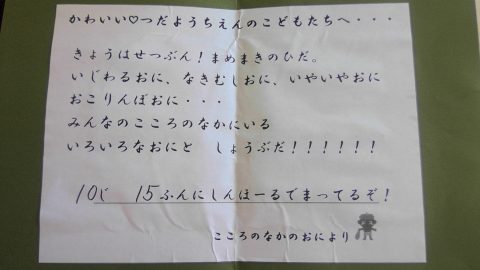 かわいい♡つだようちえんのこどもたちへ・・・
きょうはせつぶん！まめまきのひだ。
いじわるおに、なきむしおに、いやいやおに
おこりんぼおに・・・
みんなのこころのなかにいる
いろいろなおにと　しょうぶだ！！！！！！
10じ　15ふんにしんほーるでまってるぞ！
こころのなかのおにより